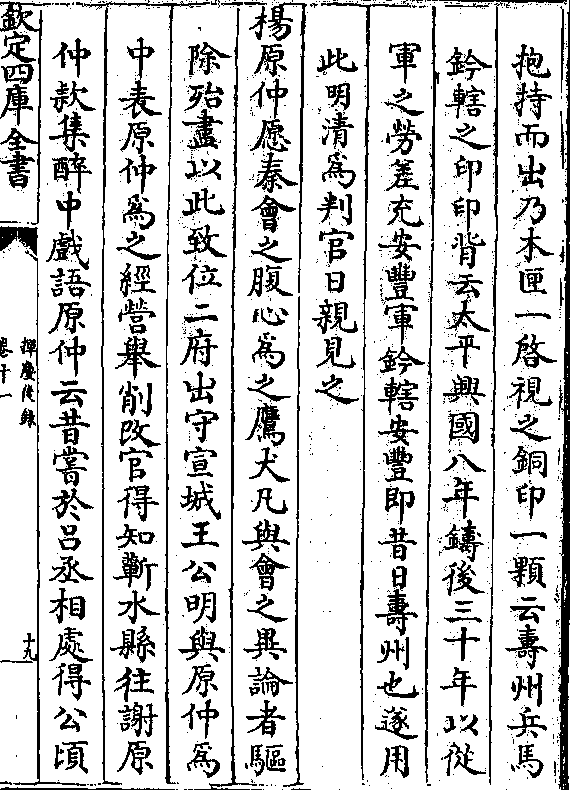 抱持而出乃木匣一啓視之銅印一顆云壽州兵馬
鈐轄之印印背云太平興國八年鑄後三十年以從
軍之勞差充安豐軍鈐轄安豐即昔日壽州也遂用
此明清爲判官日親見之
楊原仲愿秦會之腹心爲之鷹犬凡與會之異論者驅
除殆盡以此致位二府出守宣城王公明與原仲爲
中表原仲爲之經營舉削改官得知蘄水縣往謝原
仲款集醉中戲語原仲云昔嘗於呂丞相處得公頃
欽定四庫全書
揮麈後錄
卷十一
十九